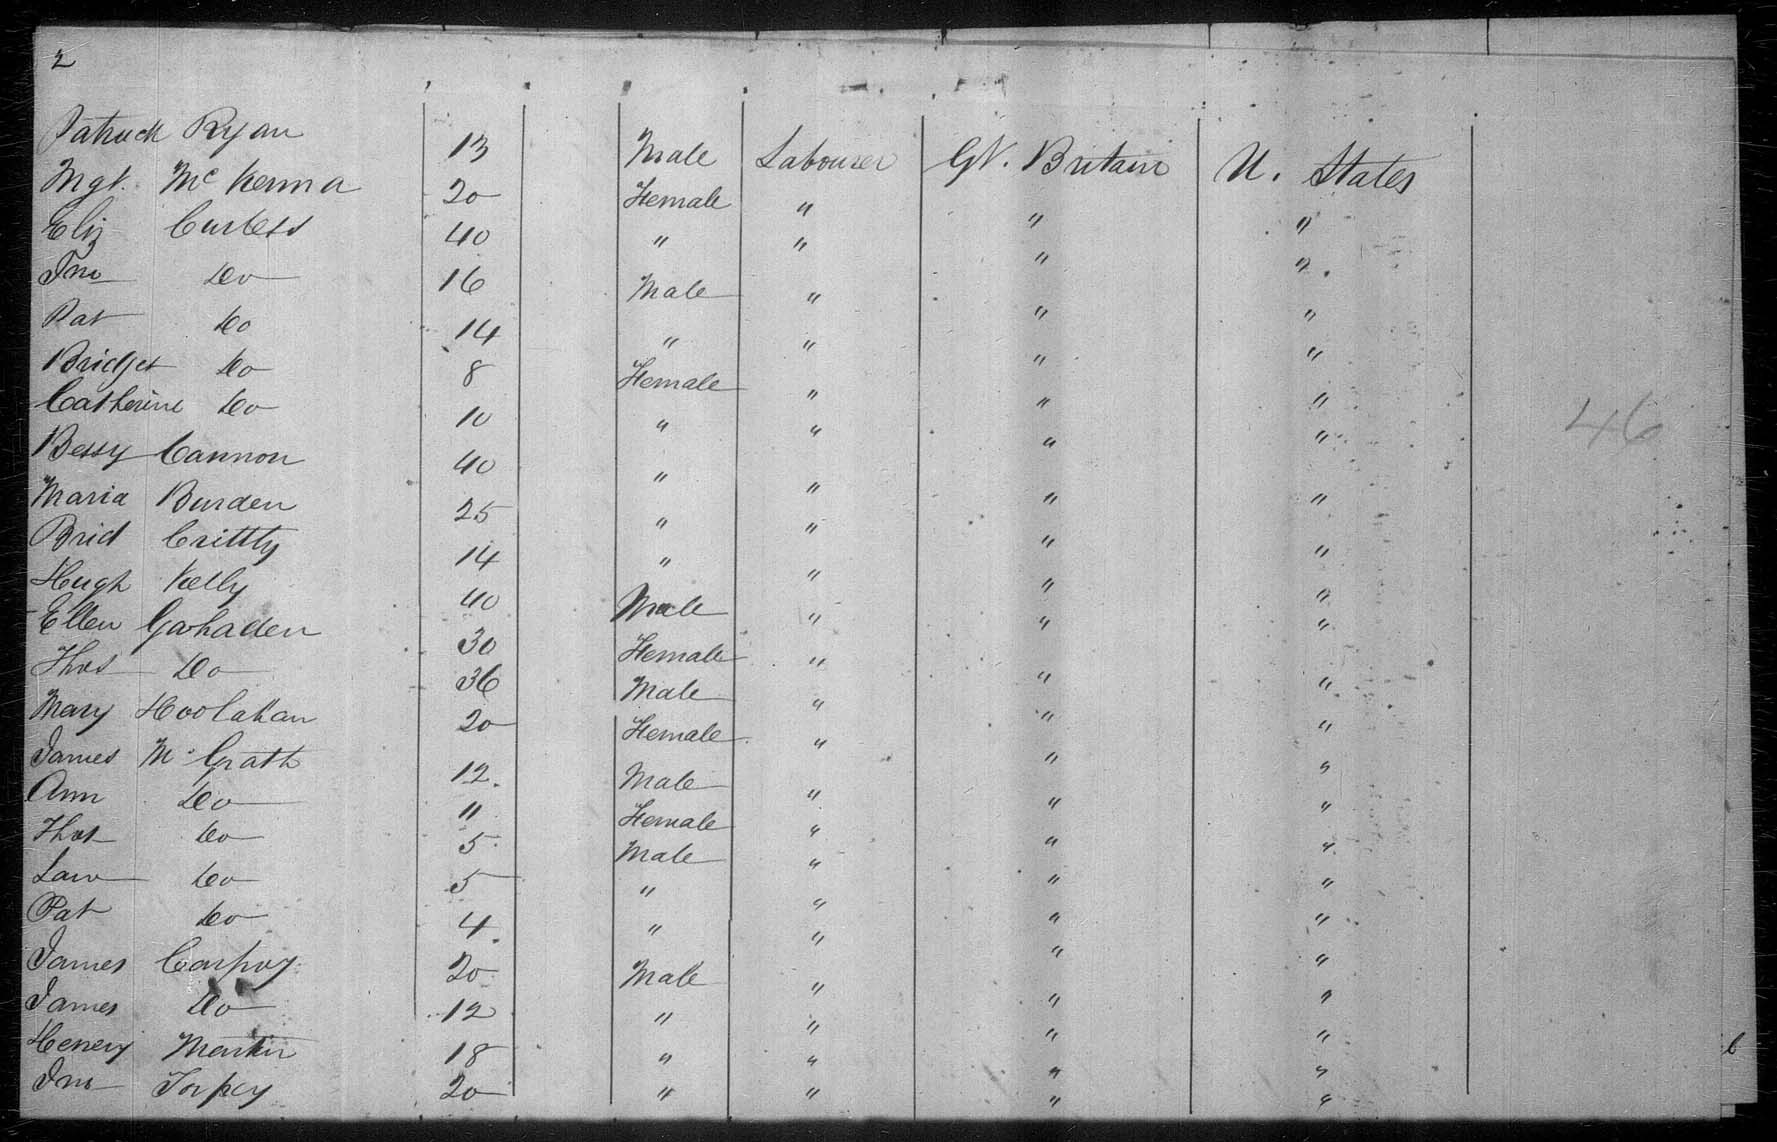 2
Patrick Ryan 13 Male Labourer Gt. Britain U. States
Mgt. Mc Kenna 20 Female " " "
Eliz Curless 40 " " " "
Jno Do 16 Male " " "
Pat Do 14 " " " "
Bridget Do 8 Female " " "
Catherine Do 10 " " " "
Bessy Cannon 40 " " " "
Maria Burden 25 " " " "
Brid Crittty 14 " " " "
Hugh Kelly 40 Male " " "
Ellen Gahaden 30 Female " " "
Thos Do 36 Male " " "
Mary Hoolahan 20 Female " " "
James Mc Grath 12. Male " " "
Ann Do 11 Female " " "
Thos Do 5 Male " " "
Law Do 5 " " " "
Pat Do 4 " " " "
James Carpoy 20 Male " " "
James Do 12 " " " "
Henery Martin 18 " " " "
Jno Torpey 20 " " " "
46